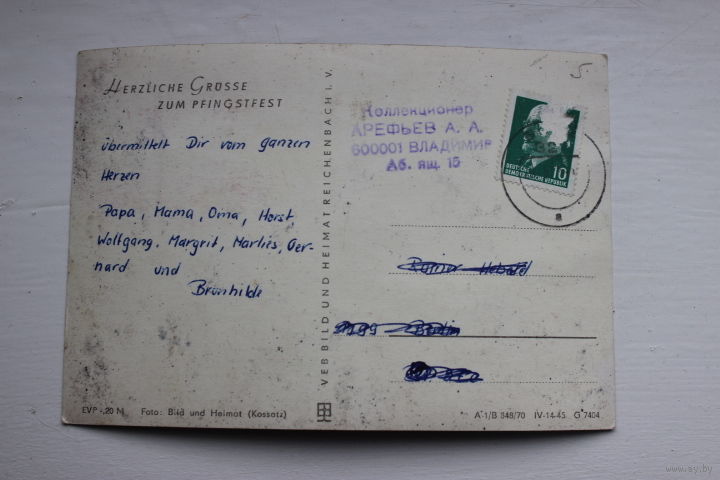 HERZLICHE GRÜSSE
ZUM PFINGSTFEST
übermittelt Dir vom ganzen
Herzen
Papa, Mama, Oma, Horst
Wolfgang, Margrit, Marlies, Ger-
hard und
Brunhilde
EVP -,20 M Foto: Bild und Heimat (Kossatz)
VEB BILD UND HEIMAT REICHENBACH I. V.
5
Коллекционер
АРЕФЬЕВ А. А.
600001 ВЛАДИМИР
Аб. ящ. 15
DEUTSCHE
DEMOKRATISCHE REPUBLIK
10
a
Rainer
Berlin
A 1/B 848/70 IV-14-45 G 7404
www.ay.by